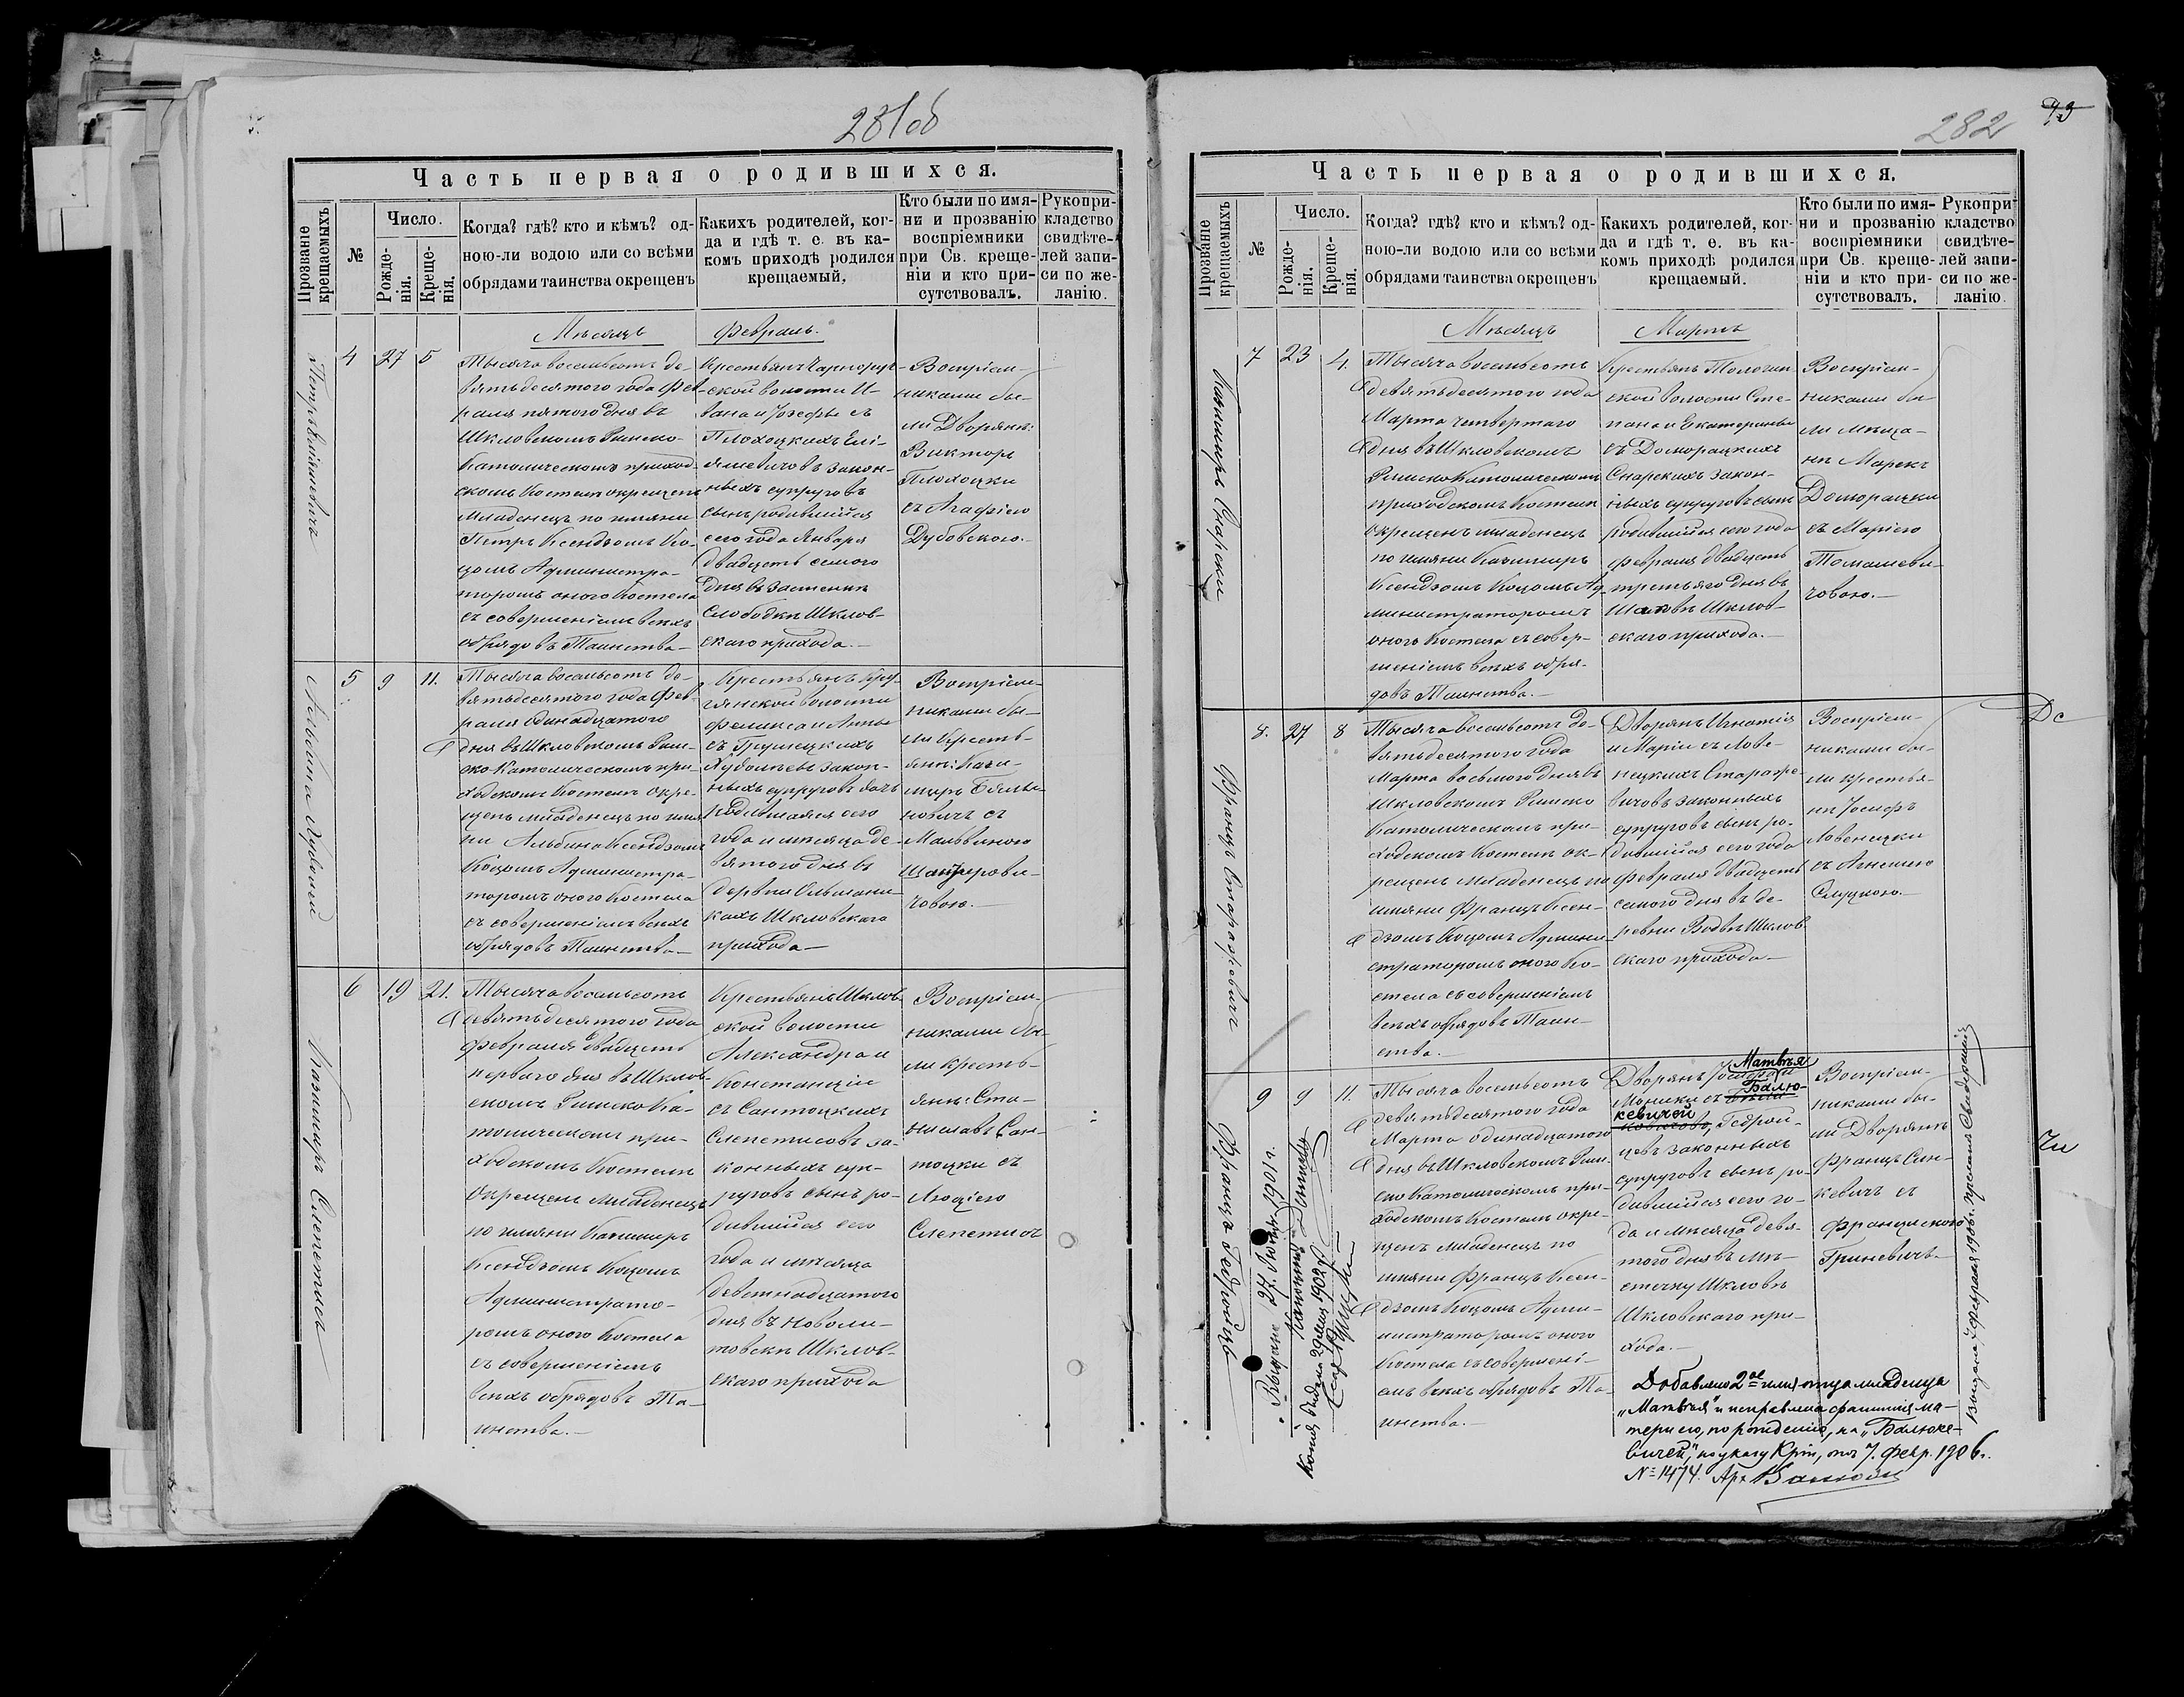 281об
Часть первая о родившихся.
Прозваніе крещаемыхъ
№
Число.
Рожде-
нія.
Креще-
нія.
Когда? гдѣ? кто и кѣмъ? од-
ною-ли водою или со всѣми
обрядами таинства окрещенъ
Какихъ родителей, ког-
да и гдѣ т. е. въ ка-
комъ приходѣ родился
крещаемый.
Кто были по имя-
ни и прозванію
воспріемники
при Св. креще-
ніи и кто при-
сутствовалъ.
Рукопри-
кладство
свидѣте-
лей запи-
си по же-
ланію.
Мѣсяцъ Февраль.
4 27 5
Тысяча восемьсотъ де-
вятьдесятого года Фев-
раля пятого дня въ
Шкловскомъ Римско-
Католическомъ приход-
скомъ Костелѣ окрещенъ
младенецъ по имяни
Петръ Ксендзомъ Ко-
цомъ Администра-
торомъ оного Костела
съ совершеніемъ всѣхъ
обрядовъ Таинства
ской волости И-
вана и Іозефы съ
Плохоцкихъ
закон-
ныхъ супруговъ
сынъ родившійся
сего года Января
двадцать семого
дня въ застенкѣ
Слободкѣ Шклов-
скаго прихода.
Воспріем-
никами бы-
ли Дворянѣ:
Викторъ
Плохоцки
съ Агафіею
Дубовскою.
Альбина
5 9 11.
Тысяча восемьсотъ де-
вятьдесятого года Фев-
раля одинадцатого
дня въ Шкловскомъ Рим-
ско-Католическомъ при-
ходскомъ Костелѣ окре-
щенъ младенецъ по имя-
ни Альбина Ксендзомъ
Коцомъ Администра-
торомъ оного Костела
съ совершеніемъ всѣхъ
обрядовъ Таинства
Крестьянъ
волости
Феликса и Анны
съ
закон-
ныхъ супруговъ дочь
родившаяся сего
года и мѣсяца де-
вятого дня въ
деревни
кахъ Шкловскаго
прихода
Воспріем-
никами бы-
ли Кресть-
янѣ: Кази-
миръ
новичъ съ
човою.
Казимиръ Слепетиса
6 19 21.
Тысяча восемьсотъ
девятьдесятого года
Февраля двадцать
перваго дня въ Шклов-
скомъ Римско Ка-
толическомъ при-
ходскомъ Костелѣ
окрещенъ младенецъ
по имяни Казимиръ
Ксендзомъ Коцомъ
Администрато-
ромъ оного Костела
съ совершеніемъ
всѣхъ обрядовъ Та-
инства.
Крестьянъ Шклов-
ской волости
Александра и
Констанціи
съ Сантоцкихъ
Слепетисовъ за-
конныхъ суп-
руговъ сынъ ро-
дившійся сего
года и мѣсяца
девятнадцатого
дня въ
Шклов-
скаго прихода
Воспріем-
никами бы-
ли кресть-
янѣ: Ста-
ниславъ Сан-
тоцки съ
Люціею
Слепетисъ
282
93
Часть первая о родившихся.
Прозваніе крещаемыхъ
№
Число.
Рожде-
нія.
Креще-
нія.
Когда? гдѣ? кто и кѣмъ? од-
ною-ли водою или со всѣми
обрядами таинства окрещенъ
Какихъ родителей, ког-
да и гдѣ т. е. въ ка-
комъ приходѣ родился
крещаемый.
Кто были по имя-
ни и прозванію
воспріемники
при Св. креще-
ніи и кто при-
сутствовалъ.
Рукопри-
кладство
свидѣте-
лей запи-
си по же-
ланію.
Мѣсяцъ Мартъ
Казимиръ Снарски
7 23 4.
Тысяча восемьсотъ
девятьдесятого года
Марта четвертаго
дня въ Шкловскомъ
Римско Католическомъ
приходскомъ Костелѣ
окрещенъ младенецъ
по имяни Казимиръ
Ксендзомъ Коцомъ Ад-
министраторомъ
оного Костела съ совер-
шеніемъ всѣхъ обря-
довъ Таинства.
Крестьянъ
ской волости Сте-
пана и Екатерины
съ Доморацкихъ
Снарскихъ закон-
ныхъ супруговъ сынъ
родившійся сего года
Февраля двадцать
третьяго дня въ
Шклов-
скаго прихода.
Воспріем-
никами бы-
ли мѣща-
нѣ Марекъ
Доморацки
съ Маріею
Томашеви-
човою.
Францъ
8. 27 8
Тысяча восемьсотъ де-
вятьдесятого года
Марта восьмого дня въ
Шкловскомъ Римско
Католическомъ при-
ходскомъ Костелѣ ок-
рещенъ младенецъ по
имяни Францъ Ксен-
дзомъ Коцомъ Админи-
страторомъ оного Ко-
стела съ совершеніемъ
всѣхъ обрядовъ Таин-
ства.
Дворянъ Игнатія
и Маріи съ Лове-
нецкихъ
вичовъ законныхъ
супруговъ сынъ ро-
дившійся сего года
Февраля двадцать
семого дня въ де-
ревни Шклов-
скаго прихода
Воспріем-
никами бы-
ли крестья-
нѣ Іосифъ
Ловенецки
съ Агнешею
Слуцкою.
Францъ Гедройцъ
9 9 11.
Тысяча восемьсотъ
девятьдесятого года
Марта одинадцатого
дня въ Шкловскомъ Рим-
ско Католическомъ при-
ходскомъ Костелѣ окре-
щенъ младенецъ по
имяни Францъ Ксен-
дзомъ Коцомъ Адми-
нистраторомъ оного
Костела съ совершені-
емъ всѣхъ обрядовъ Та-
инства.
Матвѣя
Дворянъ Іосифа и
Моники съ Балю-
кевичей, Гедрой-
цевъ законныхъ
супруговъ сынъ ро-
дившійся сего го-
да и мѣсяца девя-
того дня въ мѣ-
стечку Шкловѣ
Шкловскаго при-
хода.
Воспріем-
никами бы-
ли Дворянѣ
Францъ Син-
кевичъ съ
Францискою
Гриневичъ.
Добавлено 2ое имя отца младенца
„Матвѣя" и исправлена фамилія ма-
тери его, по рожденію, на „Балюке-
вичей", по указу Кріи, отъ 7. Февр. 1906 г.
№ 1474.